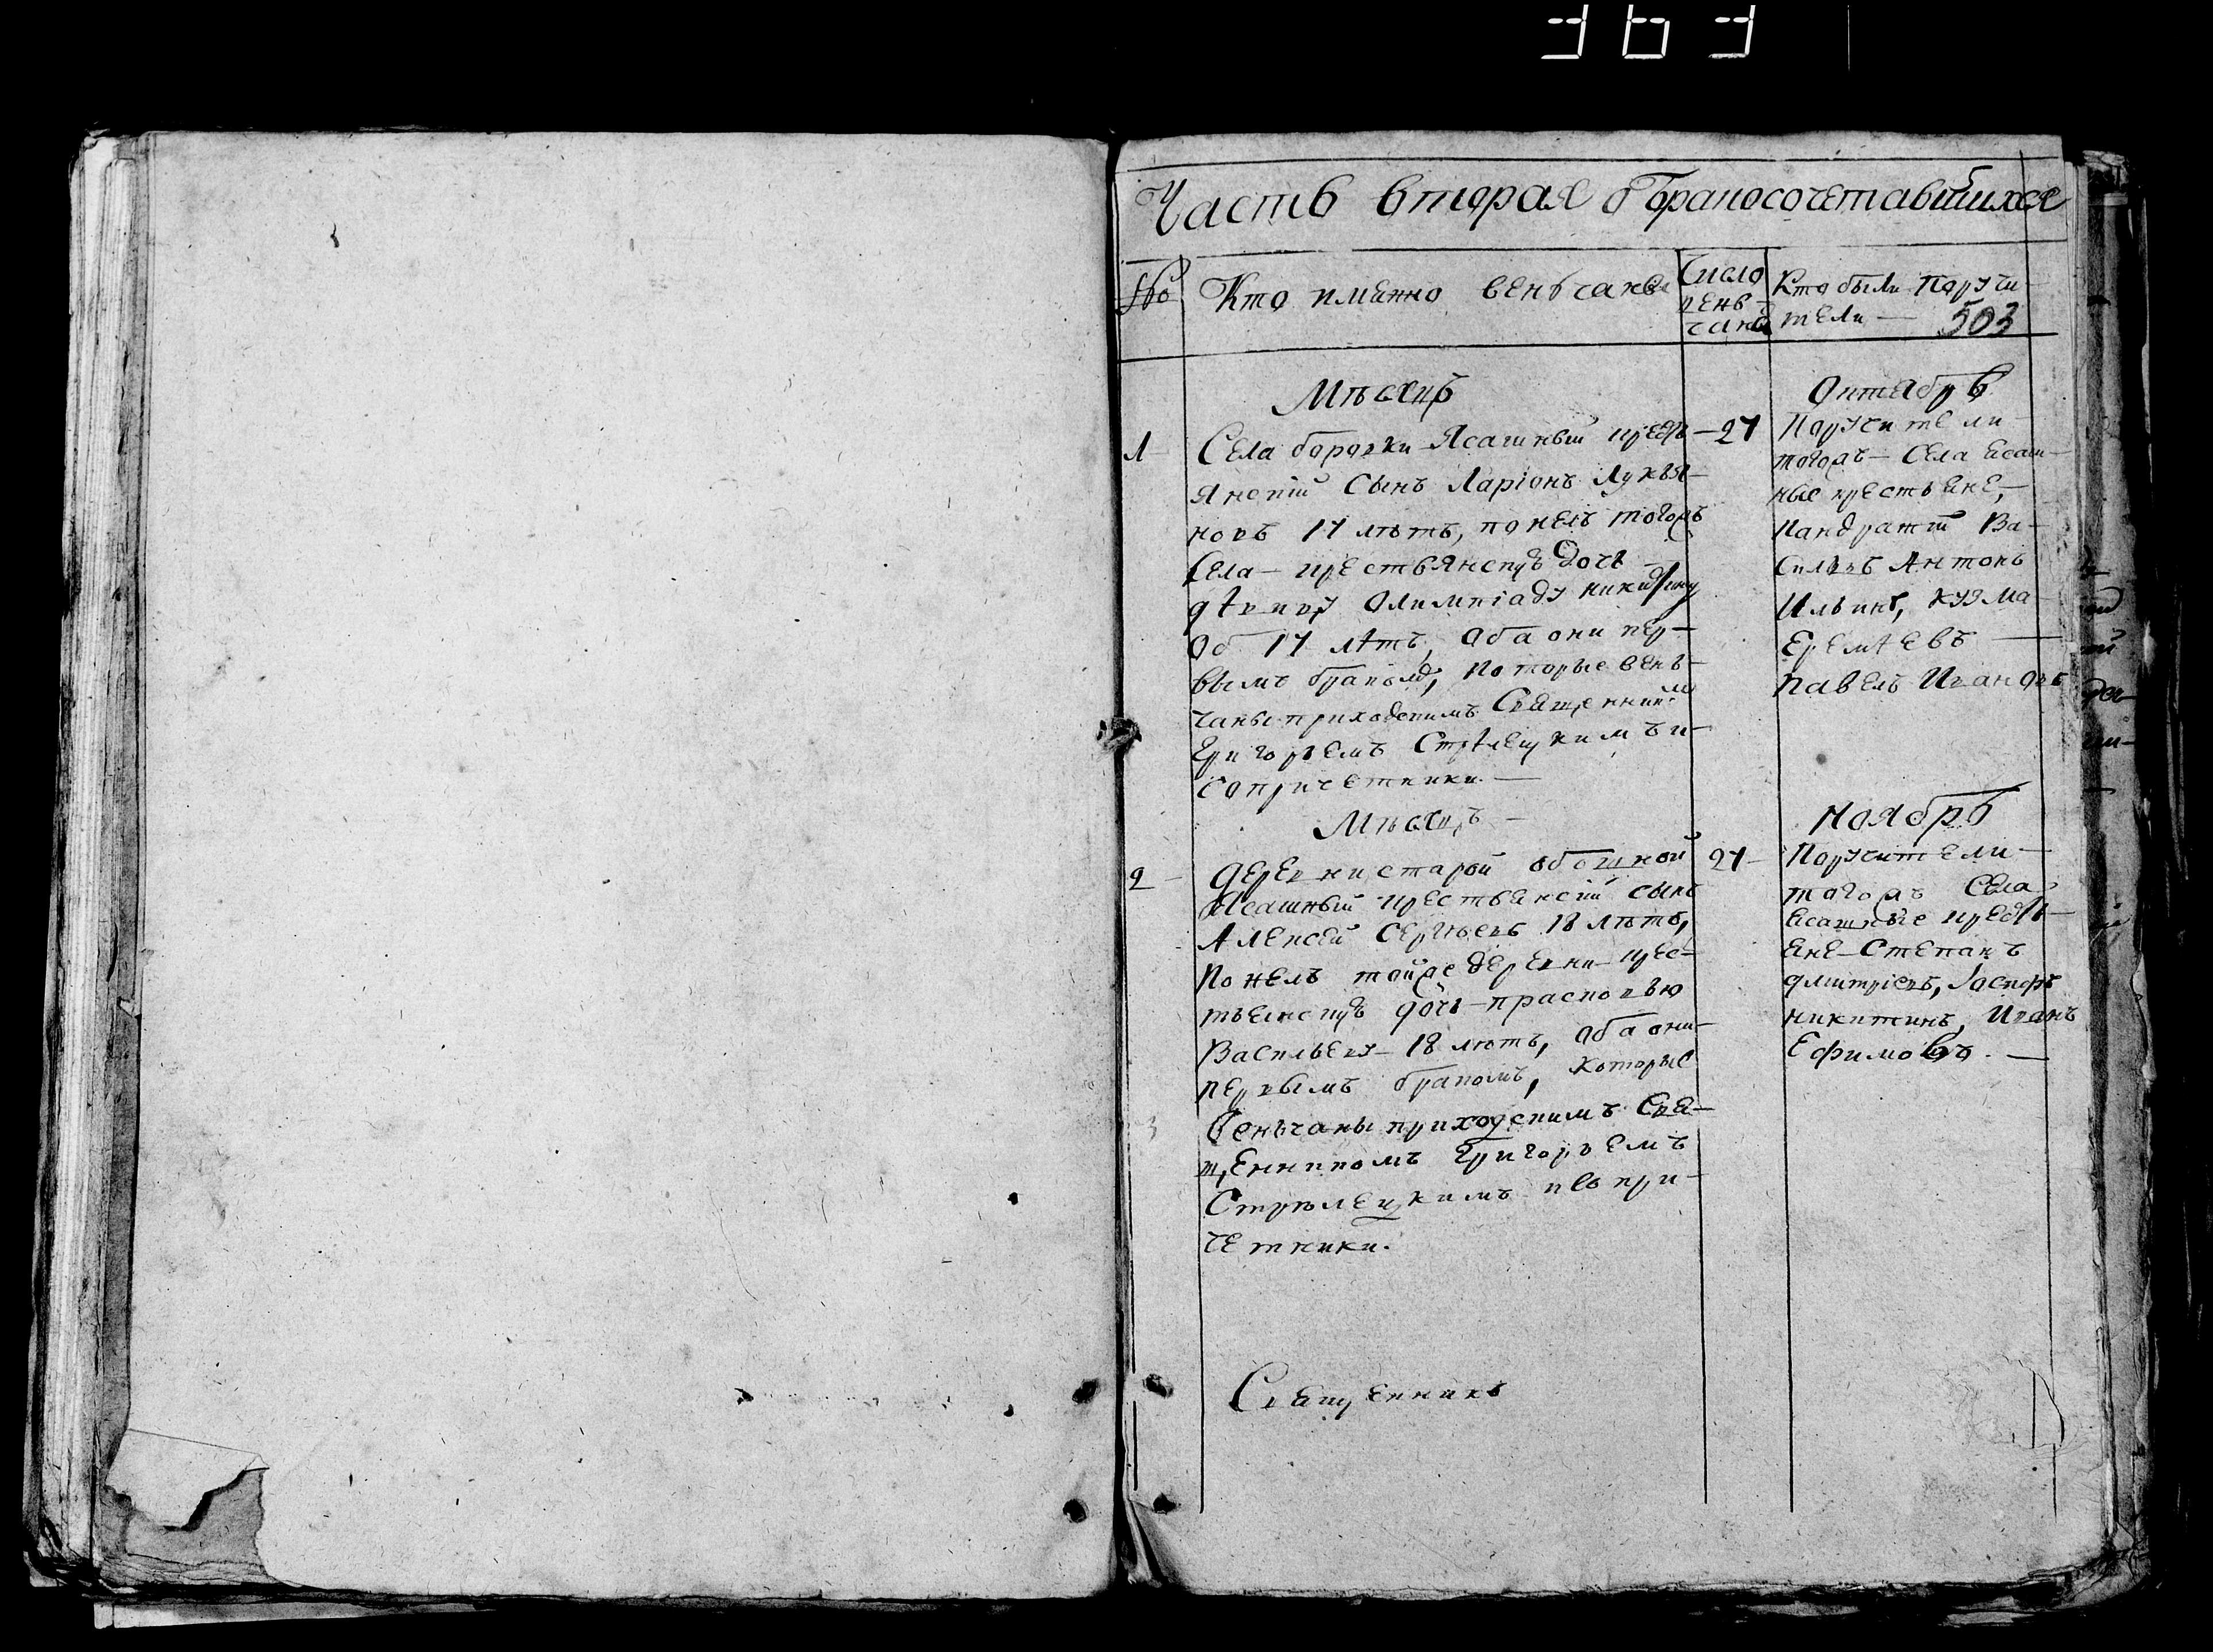 363
Часть вторая о бракосочетавшихся
№
Кто имянно веньчаны
Число
вень-
чаня
Кто были поручи-
тели — 503
Мѣсяцъ
Октябрь
1
Села боровки Ясашный крестъ
янскій Сынъ Ларіонъ Лукья-
новъ 17 лѣтъ, понелъ тогожъ
Села крестьянскую дочь
дѣвку Олимпіаду Никитину
об 17 лѣтъ, оба они пер-
вымъ бракомъ, которые вень-
чаны приходскимъ Священникомъ
Григорьемъ Стрѣлецкимъ и
сопричетники.
27
Поручители
тогожъ Села ясаш-
ные крестьяне,
Кандратій Ва-
сильевъ Антонъ
Ильинъ, Кузма
Еремѣевъ
Павелъ Ивановъ
Мѣсяцъ
Ноябрь
2
Деревни старой
Ясашный крестьенскій сынъ
Алексей Сергѣевъ 18 лѣтъ,
Понелъ тойже деревни крес-
тьенскую дочь прасковью
Васильеву 18 лѣтъ, оба они
первымъ бракомъ, которые
Веньчаны приходскимъ Свя-
щенникомъ Григорьемъ
Стрѣлецкимъ и съ при-
четники.
27
Поручители
тогожъ Села
ясашные крестъ
яне Степанъ
дмитріевъ, Іосифъ
никитинъ, Иванъ
Ефимовъ.
3
Священникъ